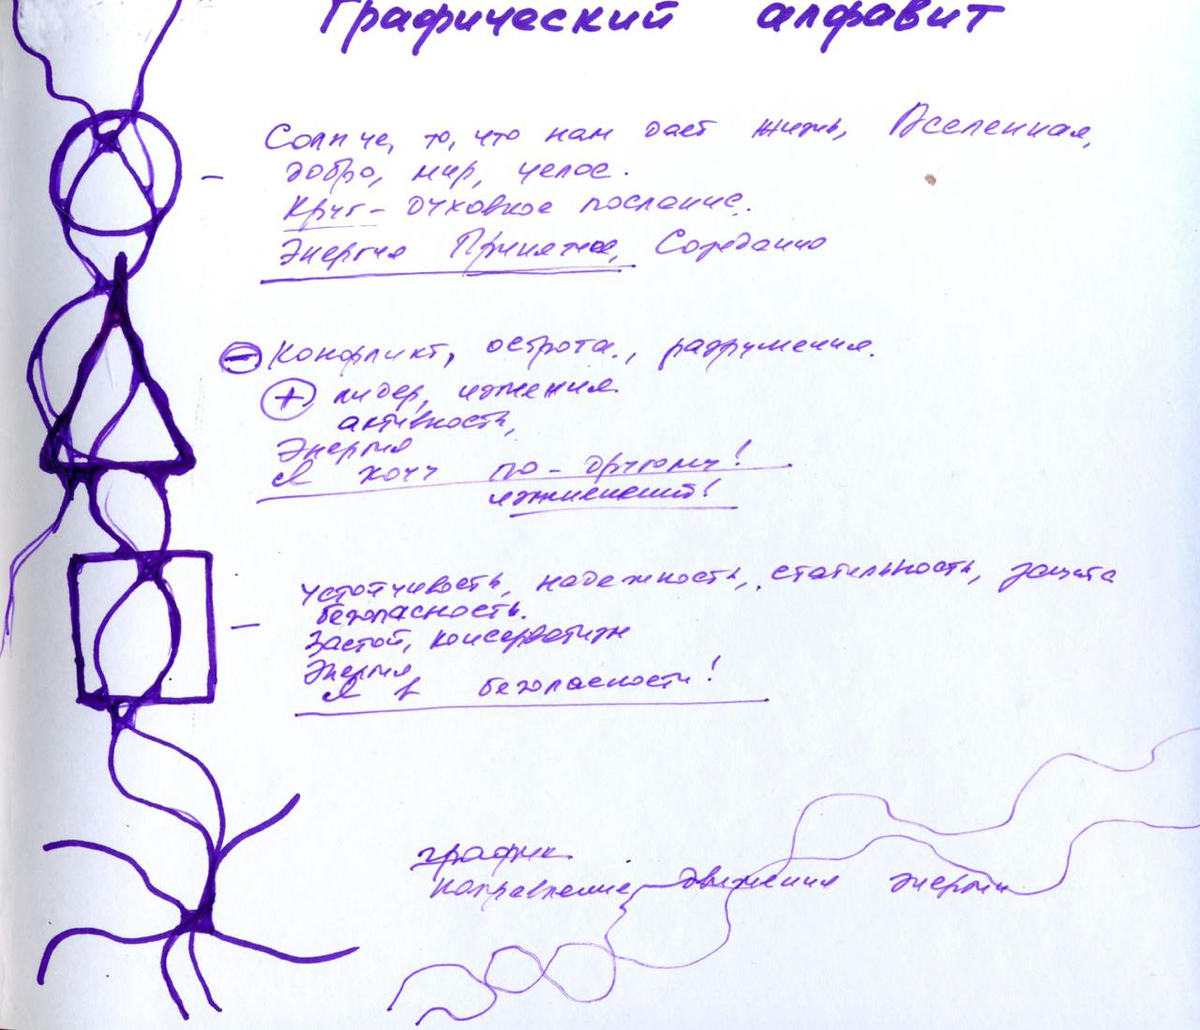 Графический алфавит
Солнце, то, что нам дает жизнь, Вселенная,
добро, мир, целое.
Круг - духовное послание.
Энергия Принятие, Созидание
⊖ Конфликт, острота, разрушения.
⊕ лидер, изменения.
активность,
Энергия
Я хочу по-другому!
изменений!
Устойчивость, надежность, стабильность, защита
безопасность.
Застой, консерватизм
Энергия
Я в безопасности!
график.
направление движения энергии